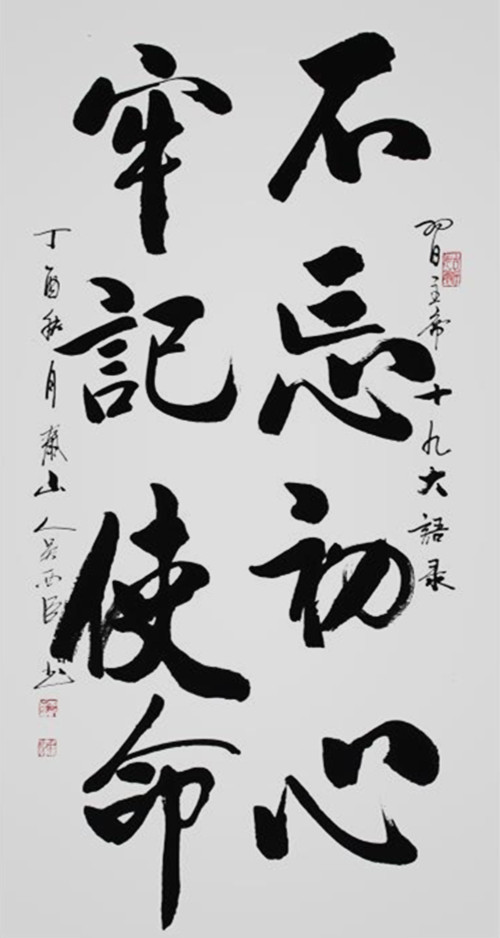 習主席十九大語录
不忘初心
牢記使命
丁酉秋月山人吴西臣